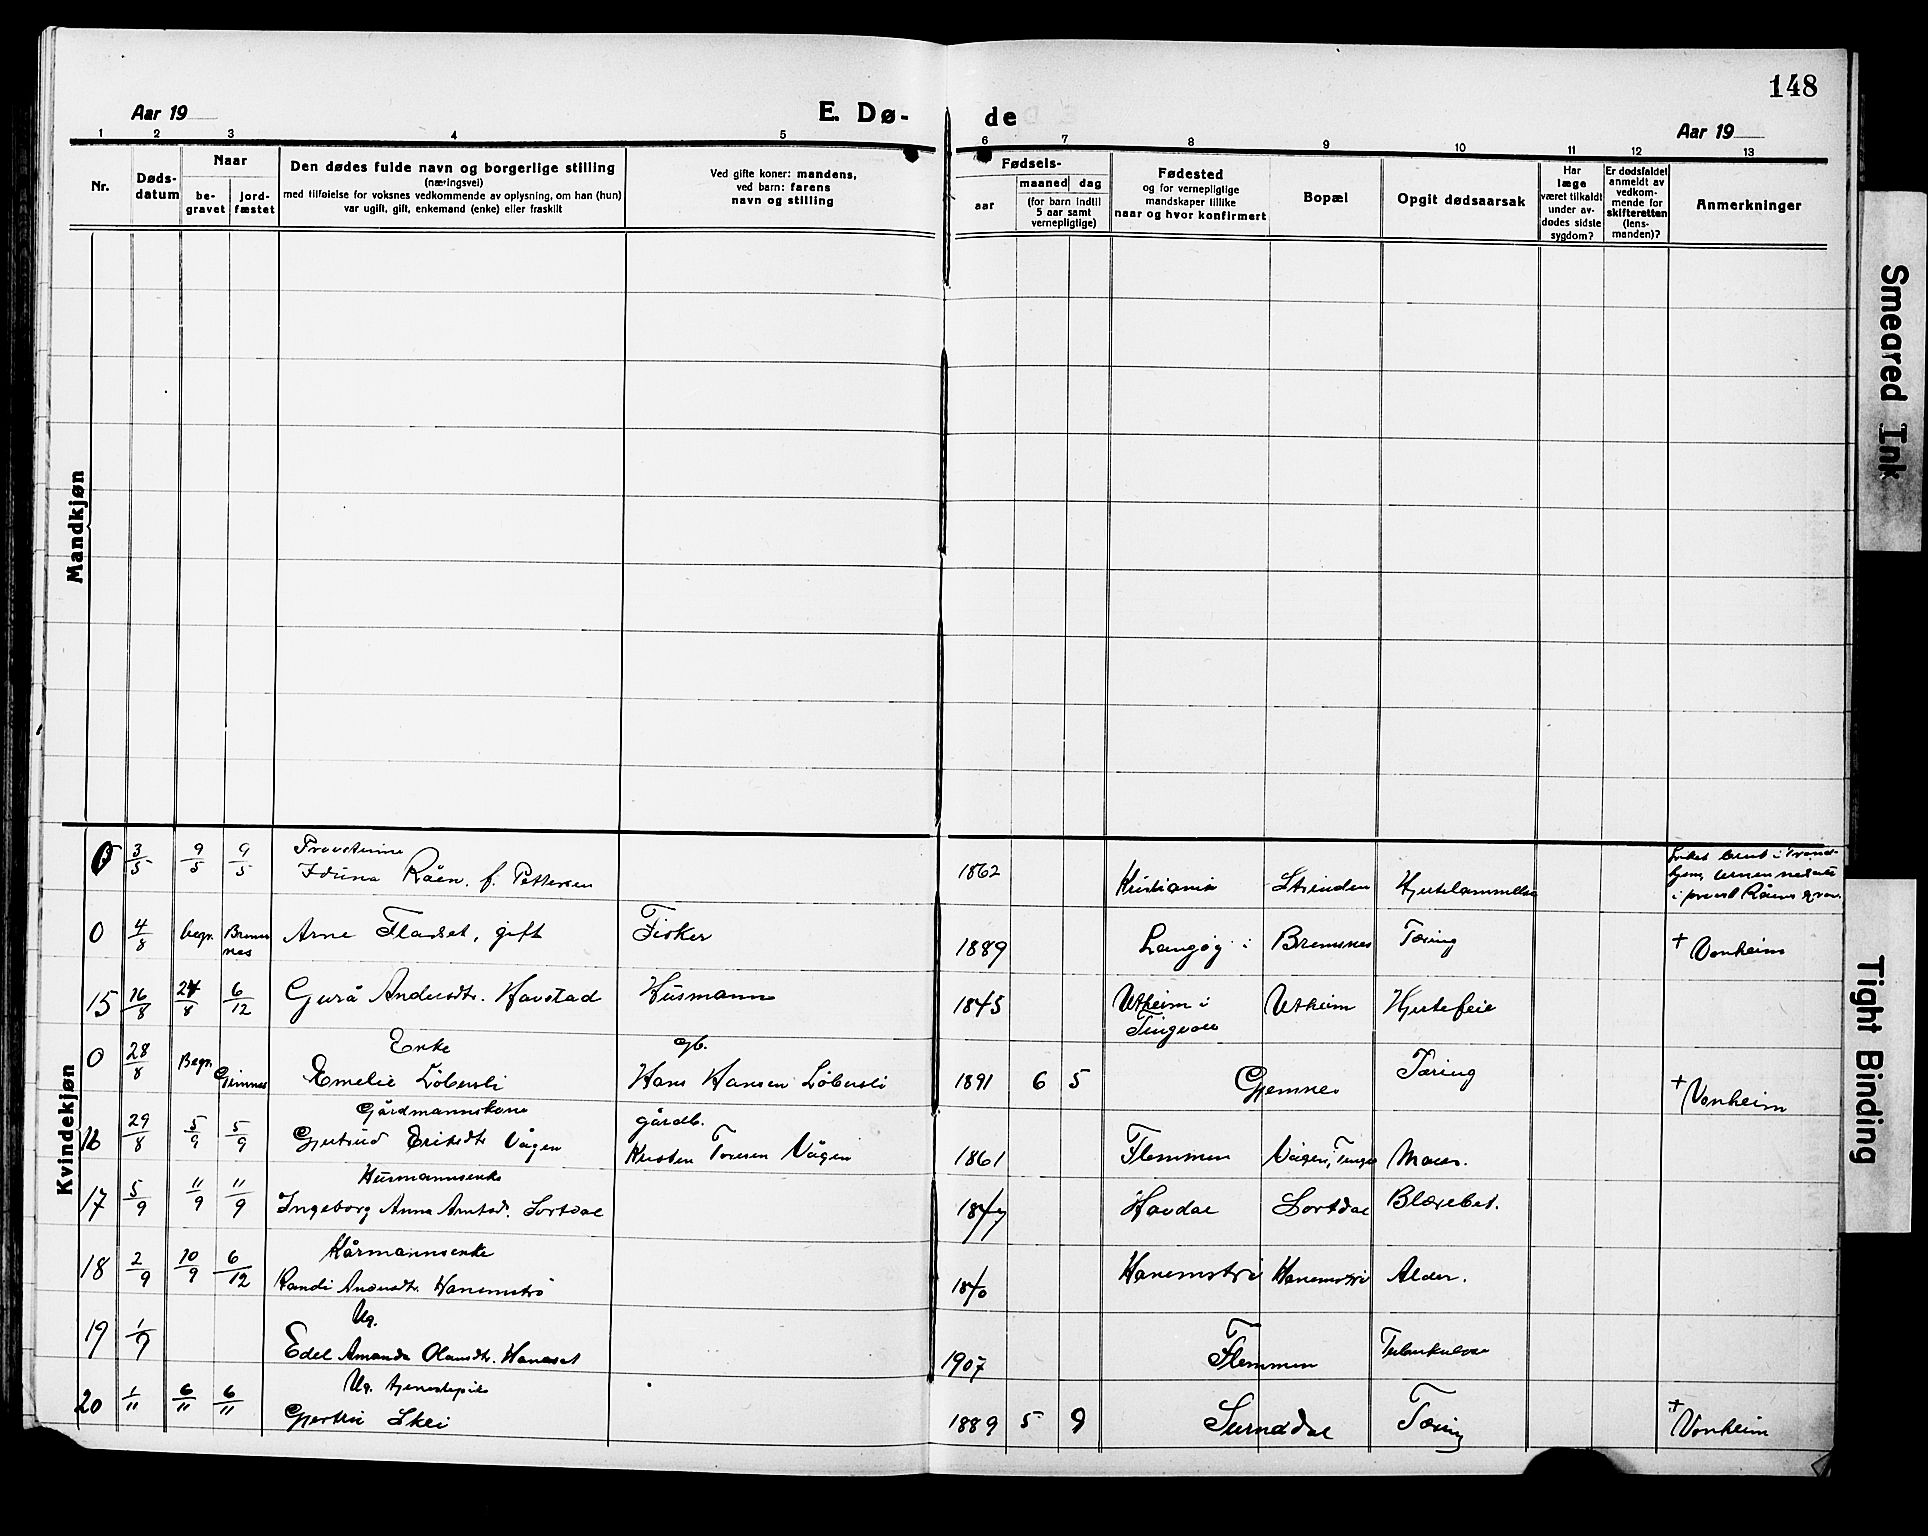 148
Aar 19
E. Dø-
de
Aar 19
1 2 3 4 5 6 7 8 9 10 11 12 13
Nr.
Døds-
datum
Naar
be-
gravet
jord-
fæstet
Den dødes fulde navn og borgerlige stilling
(næringsvei)
med tilføielse for voksnes vedkommende av oplysning, om han (hun)
var ugift, gift, enkemand (enke) eller fraskilt
Ved gifte koner: mandens,
ved barn: farens
navn og stilling
Fødsels-
aar
maaned dag
(for barn indtil
5 aar samt
vernepligtige)
Fødested
og for vernepligtige
mandskaper tillike
naar og hvor konfirmert
Bopæl
Opgit dødsaarsak
Har
læge
været tilkaldt
under av-
dødes sidste
sygdom?
Er dødsfaldet
anmeldt av
vedkom-
mende for
skifteretten
(lens-
manden)?
Anmerkninger
Mandkjøn
Kvindekjøn
0 3/5 9/5 9/5 Provstinne
Iduna Råen. f. Pettersen 1862 Kristiania Strinden Hjertelammelse
Liket brent i Trond-
hjem, urnen nedsatt
i provst Råens grav.
0 4/8 begr. Brems-
nes Arne Fladset, gift Fisker 1889 Langøy i Bremsnes Tæring + Vonheim
15 16/8 24/8 6/12 Gurå Andersdtr. Havstad Husmann 1845 Utheim i
Tingvoll Utheim Hjertefeil
0 28/8 Begr. Gjemnes Enke
Emelie Löbersli gb.
Hans Hansen Löbersli 1891 6 5 Gjemnes Tæring + Vonheim
16 29/8 5/9 5/9 Gårdmannskone
Gjertrud Eriksdtr Vågen gårdb.
Kristen Toresen Vågen 1861 Flemmen Vågen, Tingv Mave.
17 5/9 11/9 11/9 Husmannsenke
Ingeborg Anna Arntsd. Sortdal 1847 Havdal Sortdal Blærebet.
18 2/9 10/9 6/12 Kårmannsenke
Randi Andersdtr. Hanemstrø 1840 Hanemstrø Hanemstrø Alder.
19 1/9 Ug.
Edel Amanda Olausdtr. Hanaset 1907 Flemmen Tuberkulose
20 1/11 6/11 6/11 Ug. tjenestepike
Gjertrui Skei 1889 5 9 Surnadal Tæring + Vonheim
Smeared Ink
Tight Binding